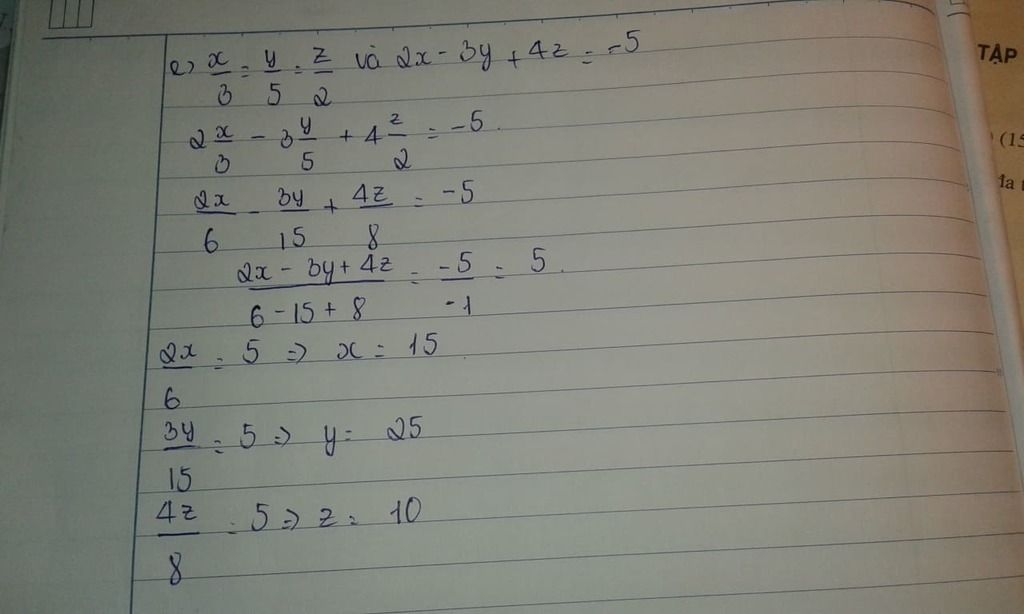 e) x/3 = y/5 = z/2 và 2x - 3y + 4z = -5
2 x/3 - 3 y/5 + 4 z/2 = -5.
2x/6 - 3y/15 + 4z/8 = -5
(2x - 3y + 4z)/(6 - 15 + 8) = -5/-1 = 5.
2x/6 = 5 => x = 15.
3y/15 = 5 => y = 25
4z/8 = 5 => z = 10
TẬP
(15